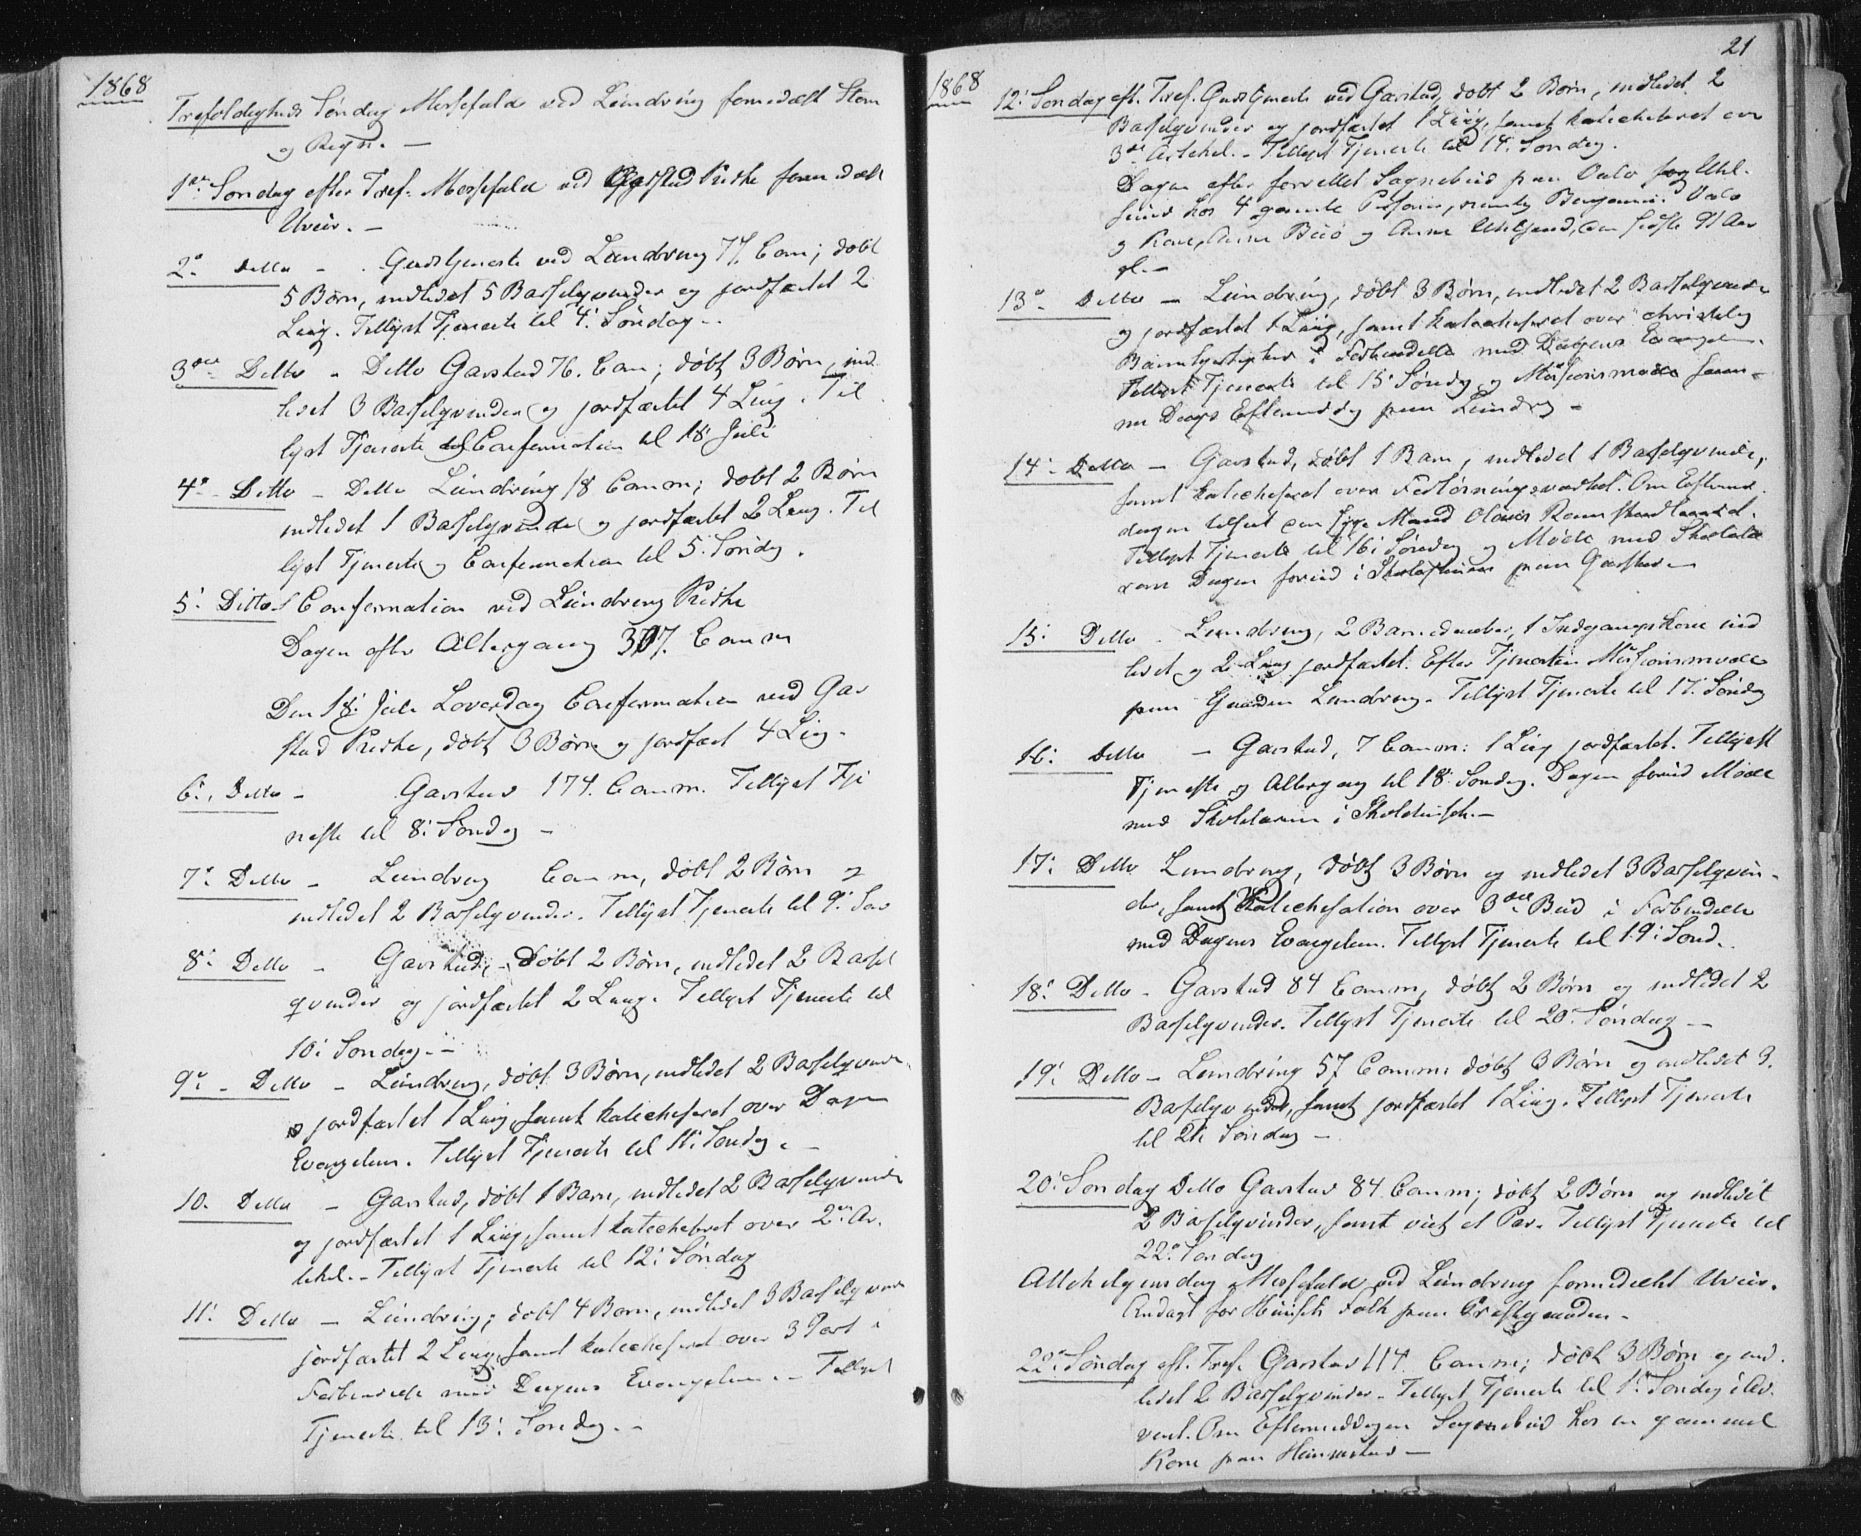 1868
Trefoldigheds Söndag Messefald ved Lundring formedelst Storm
og Regn. —
1ste Söndag efter Tref. Messefald ved Kirke formedelst
Uveir. —
2: Ditto - Gudstjeneste ved Lundring 77. Com; döbt
5 Börn, indledet 5 Barselqvinder og jordfæstet 2
Liig. Tillyst Tjeneste til 4: Söndag. -
3die Ditto - Ditto Garstad 76. Com; döbt 3 Börn, ind
ledet 3 Barselqvinder og jordfæstet 4 Liig. Til
lyst Tjeneste og Confirmation til 18 Juli
4: Ditto - Ditto Lundring 18 Comm; döbt 2 Börn
indledet 1 Barselqvinde og jordfæstet 2 Liig. Til
lyst Tjeneste og Confirmation til 5: Söndag.
5: Ditto Confirmation ved Lundring Kirke
Dagen efter Altergang 307. Comm
Den 18: Juli Löverdag Confirmation ved Gar
stad Kirke, döbt 3 Börn og jordfæst 4 Lig.
6: Ditto - Garstad 174. Comm. Tillyst Tje
neste til 8: Söndag -
7: Ditto - Lundring Comm, döbt 2 Börn og
indledet 2 Barselqvinder. Tillyst Tjeneste til 9: Sön
8: Ditto - Garstad, - döbt 2 Börn, indledet 2 Barsel
qvinder og jordfæstet 2 Liig. Tillyst Tjeneste til
10: Söndag. -
9: - Ditto - Lundring, döbt 3 Börn, indledet 2 Barselqvinder
og jordfæstet 1 Liig, samt katechiseret over Dagens
Evangelium. Tillyst Tjeneste til 11: Söndag. -
10. Ditto - Garstad, döbt 1 Barn, indledet 2 Barselqvinder
og jordfæstet 1 Liig, samt katechiseret over 2den Ar-
tikel. - Tillyst Tjeneste til 12: Söndag
11: Ditto - Lundring; döbt 4 Börn, indledet 3 Barselqvinder
jordfæstet 2 Liig, samt katechiseret over 3 Part i
Forbindelse med Dagens Evangelium. - Tillyst
Tjeneste til 13: Söndag. -
21
1868
12: Söndag eft. Tref. Gudstjeneste ved Garstad, döbt 2 Börn, indledet 2
Barselqvinder og jordfæstet 1 Liig, samt katechiseret over
3die Artikel. - Tillyst Tjeneste til 14: Söndag.
Dagen efter forrettet Sognebud paa Valö og
hos 4 gamle Personer, nemlig Benjamin Valö
og Kone, Anne og Anne, den sidste 91 Aar
gl. -
13: Ditto - Lundring, döbt 3 Börn, indledet 2 Barselqvinder
og jordfæstet 1 Liig, samt katechiseret over christelig
Barmhjertighed i Forbindelse med Dagens Evangelium.
Tillyst Tjeneste til 15 Söndag og Missionsmöde sam-
me Dags Eftermiddag paa Lundring -
14: Ditto - Garstad, döbt 1 Barn, indledet 1 Barselqvinde,
samt katechiseret over Forlösningsværket. Om Eftermid-
dagen tilseet den syge Mand Olaus
Tillyst Tjeneste til 16: Söndag og Möde med Skolelæ
rerne Dagen forud i Skolestuen paa Garstad -
15: Ditto - Lundring, 2 Barnedaaber, 1 Indgangskone ind
ledet og 2 Liig jordfæstet. Efter Tjenesten Missionsmöde
paa Gaarden Lundring. Tillyst Tjeneste til 17: Söndag
16: Ditto - Garstad, 7 Comm: 1 Liig jordfæstet. Tillyst
Tjeneste og Altergang til 18: Söndag. Dagen forud Möde
med Skolelærerne i Skoledistr. -
17: Ditto Lundring, döbt 3 Börn og indledet 3 Barselqvin-
der, samt Katechisation over 3die Bud i Forbindelse
med Dagens Evangelium. Tillyst Tjeneste til 19: Sönd.
18: Ditto - Garstad 84 Comm, döbt 2 Börn og indledet 2
Barselqvinder. Tillyst Tjeneste til 20: Söndag -
19: Ditto - Lundring 57 Comm: döbt 3 Börn og indledet 3.
Barselqvinder, samt jordfæstet 1 Liig. Tillyst Tjeneste
til 21: Söndag -
20: Söndag Ditto Garstad 84. Comm; döbt 2 Börn og indledet
2 Barselqvinder, samt viet et Par. Tillyst Tjeneste til
22: Söndag
Allehelgensdag Messefald ved Lundring formedelst Uveir.
Andagt for Husets Folk paa Præstegaarden -
22: Söndag eft. Tref. Garstad 114. Comm; döbt 3 Börn og ind-
ledet 2 Barselqvinder - Tillyst Tjeneste til 1: Söndag i Ad-
vent. Om Eftermiddagen Sognebud hos en gammel
Kone paa